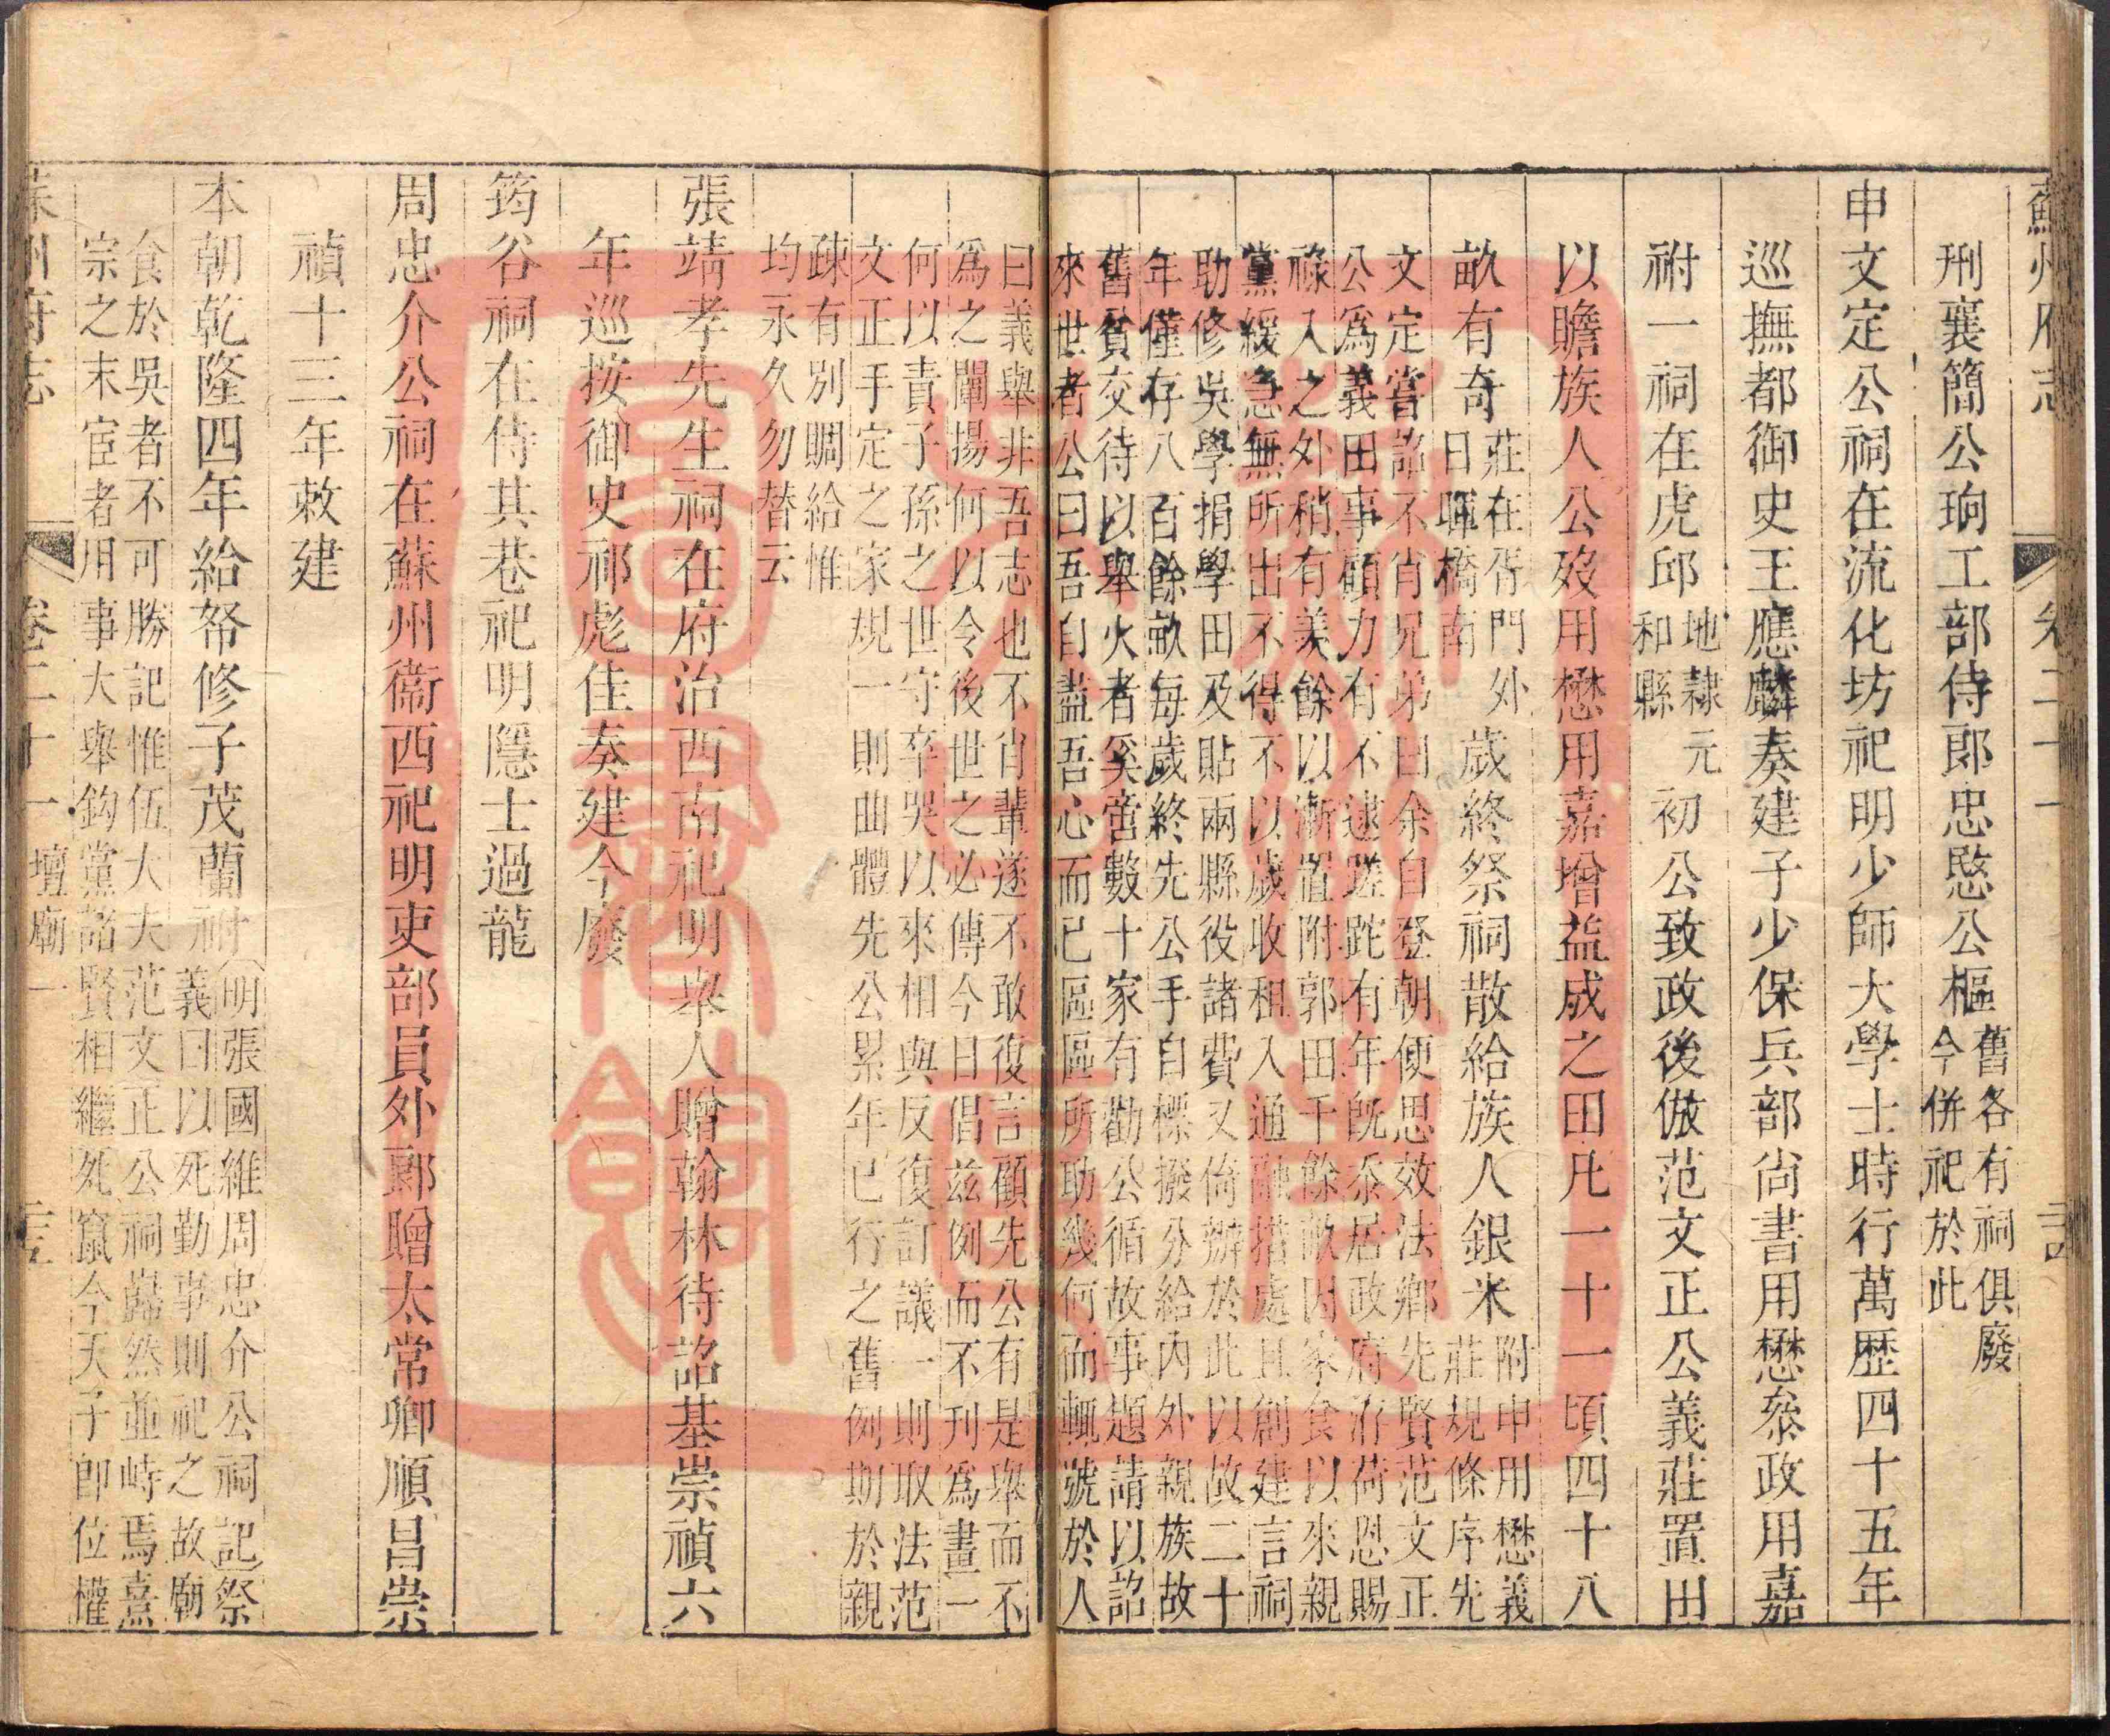 蘇州府志
卷二十一
刑襄簡公珣工部侍郎忠愍公樞舊各有祠俱廢
今併祀於此
申文定公祠在流化坊祀明少師大學士時行萬歴四十五年
巡撫都御史王應麟奏建子少保兵部尚書用懋叅政用嘉
祔一祠在虎邱地隷元
和縣
初公致政後倣范文正公義莊置田
以贍族人公殁用懋用嘉增益成之田凡一十一頃四十八
畝有奇莊在胥門外
日暉橋南
歲終祭祠散給族人銀米附申用懋義
莊規條序先
文定嘗詔不肖兄弟曰余自登朝便思效法鄉先賢范文正
公爲義田事顧力有不逮蹉跎有年旣忝居政府洊荷恩賜
祿入之外稍有羨餘以漸置附郭田千餘畝因家食以來親
黨緩急無所出不得不以歲收租入通融措處且創建言祠
助修吳學捐學田及貼兩縣役諸費又倚辦於此以故二十
年僅存八百餘畝每歲終先公手自標撥分給內外親族故
舊貧交待以舉火者奚啻數十家有勸公循故事題請以詔
來世者公曰吾自盡吾心而已區區所助幾何而輒號於人
曰義舉非吾志也不肖輩遂不敢復言顧先公有是舉而不
爲之闡揚何以令後世之必傳今日倡兹例而不刊爲畫一
何以責子孫之世守卒哭以來相與反復訂議一則取法范
文正手定之家規一則曲體先公累年已行之舊例期於親
疎有別賙給惟
均永久勿替云
張靖孝先生祠在府治西南祀明舉人贈翰林待詔基崇禎六
年巡按御史祁彪佳奏建今廢
筠谷祠在侍其巷祀明隱士過龍
周忠介公祠在蘇州衞西祀明吏部員外郞贈太常卿順昌崇
禎十三年敕建
本朝乾隆四年給帑修子茂蘭祔明張國維周忠介公祠記祭
義曰以死勤事則祀之故廟
食於吳者不可勝記惟伍大夫范文正公祠巋然並峙焉熹
宗之末宦者用事大舉鈎黨諸賢相繼死竄今天子卽位權
蘇州府志
卷二十一
壇廟一